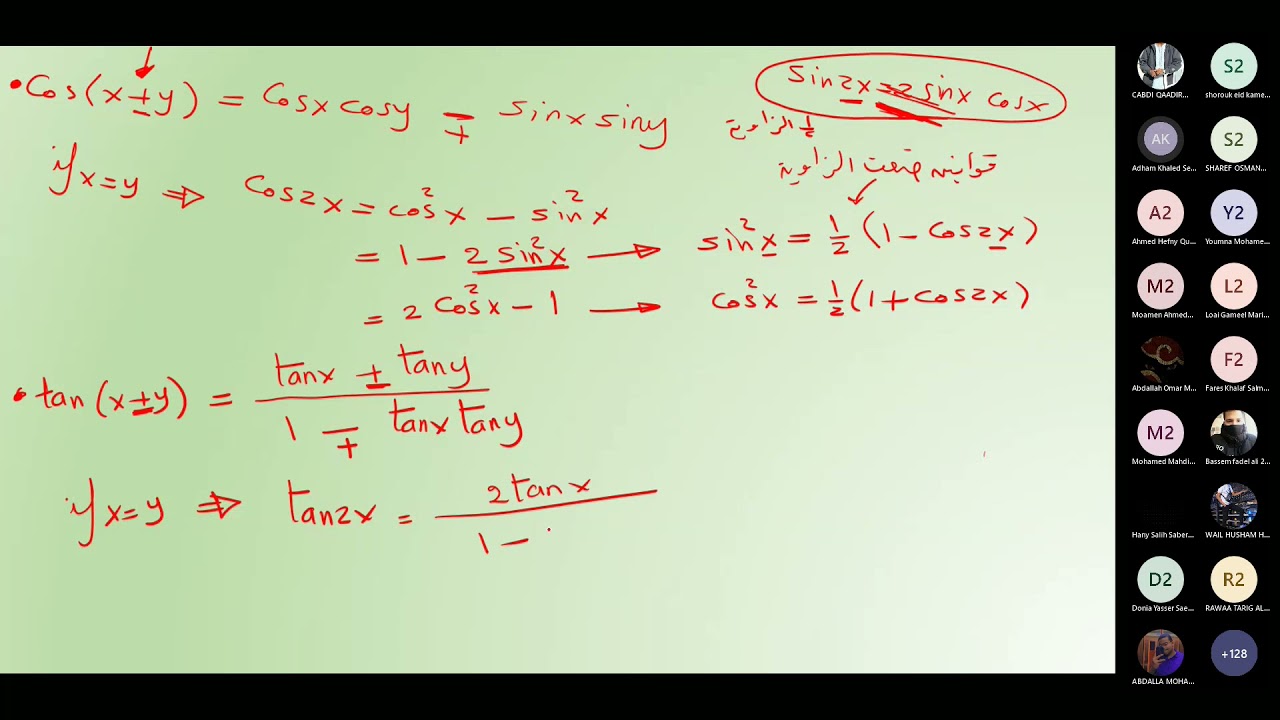 • Cos(x±y) = Cosx cosy ∓ sinx siny
sin2x = 2 sinx cosx
½ الزاوية
if x=y ⇒ Cos2x = cos²x − sin²x
قوانين ضعف الزاوية
= 1 − 2 sin²x → sin²x = ½ (1 − Cos2x)
= 2 Cos²x − 1 → Cos²x = ½ (1 + Cos2x)
• tan (x±y) = (tanx ± tany) / (1 ∓ tanx tany)
if x=y ⇒ tan2x = (2tanx) / (1 −
CABDI QAADIR...
S2
shorouk eid kame...
AK
Adham Khaled Se...
S2
SHAREF OSMAN...
A2
Ahmed Hefny Qu...
Y2
Youmna Mohame...
M2
Moamen Ahmed...
L2
Loai Gameel Mari...
Abdallah Omar M...
F2
Fares Khalaf Salm...
M2
Mohamed Mahdi...
Bassem fadel ali 2...
Hany Salih Saber...
WAIL HUSHAM H...
D2
Donia Yasser Sae...
R2
RAWAA TARIG AL...
ABDALLA MOHA...
+128